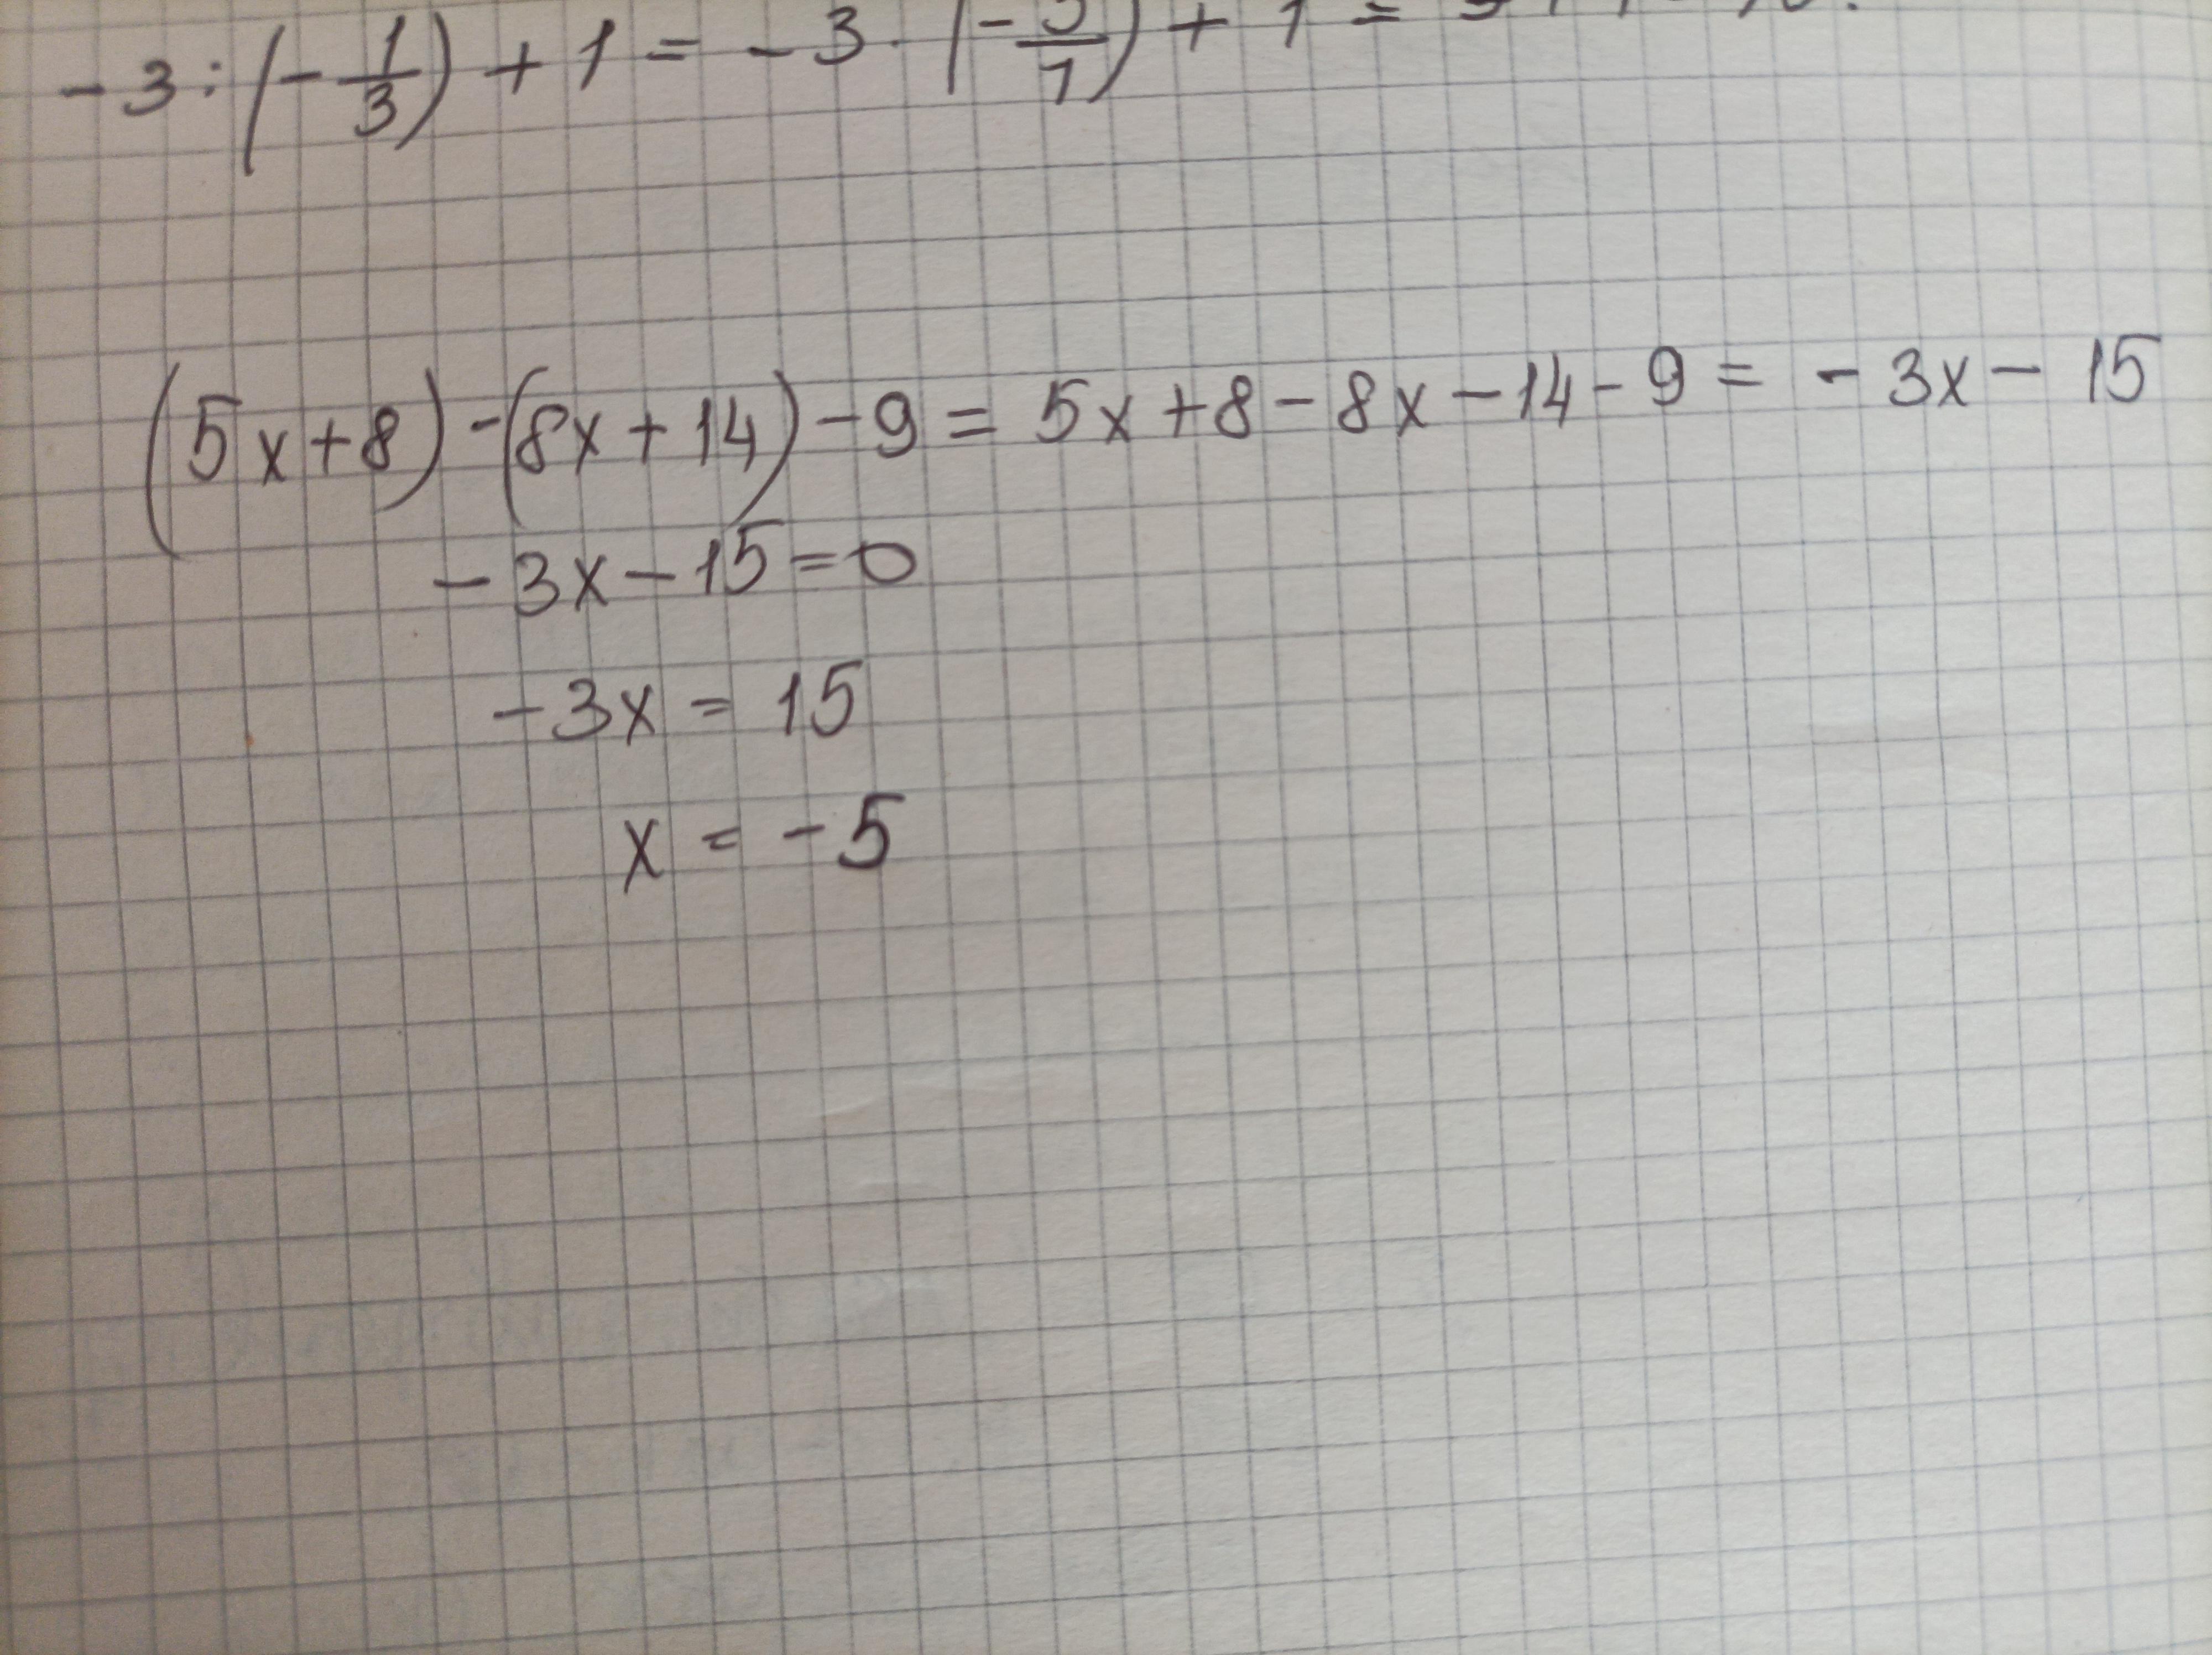 -3:(-1/3)+1=-3·(-3/1)+1=
(5x+8)-(8x+14)-9=5x+8-8x-14-9=-3x-15
-3x-15=0
-3x=15
x=-5